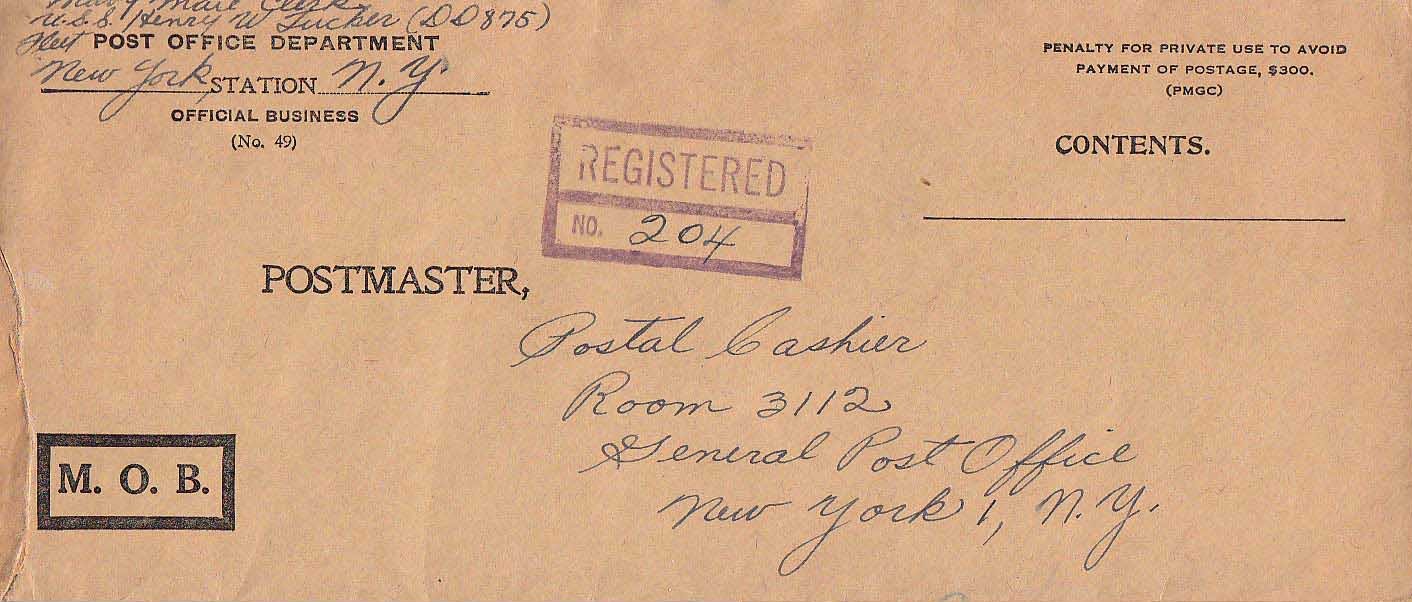 Navy Mail Clerk
U.S.S. Henry W Tucker (DD875)
Fleet POST OFFICE DEPARTMENT
New York, STATION N.Y.
OFFICIAL BUSINESS
(No. 49)
PENALTY FOR PRIVATE USE TO AVOID
PAYMENT OF POSTAGE, $300.
(PMGC)
CONTENTS.
REGISTERED
NO. 204
POSTMASTER,
Postal Cashier
Room 3112
General Post Office
New York 1, N.Y.
M. O. B.